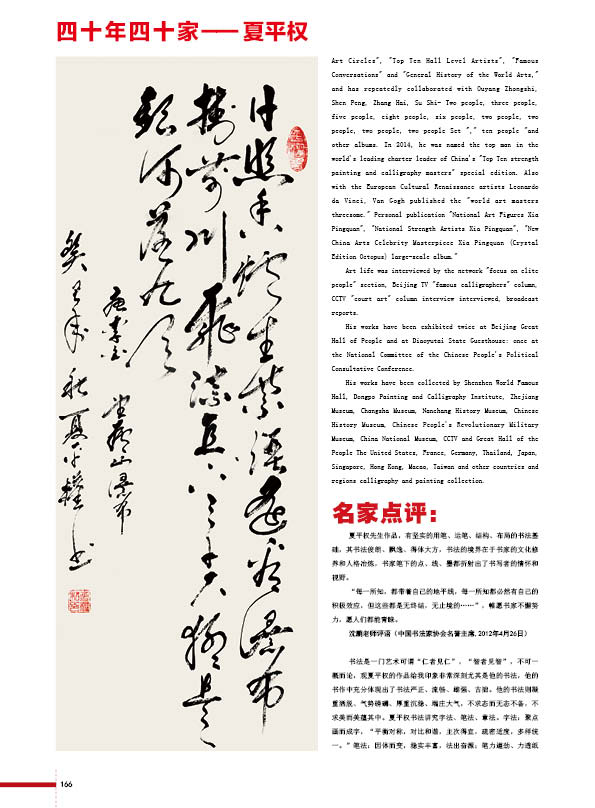 四十年四十家——夏平权
日照香爐生紫煙遥看瀑布
掛前川飛流直下三千尺疑是
銀河落九天
唐李白 望廬山瀑布
癸巳年秋夏平權书
Art Circles", "Top Ten Hall Level Artists", "Famous
Conversations" and "General History of the World Arts,"
and has repeatedly collaborated with Ouyang Zhongshi,
Shen Peng, Zhang Hai, Su Shi- Two people, three people,
five people, eight people, six people, two people, two
people, two people, two people Set "," ten people "and
other albums. In 2014, he was named the top man in the
world's leading charter leader of China's "Top Ten strength
painting and calligraphy masters" special edition. Also
with the European Cultural Renaissance artists Leonardo
da Vinci, Van Gogh published the "world art masters
threesome." Personal publication "National Art Figures Xia
Pingquan", "National Strength Artists Xia Pingquan", "New
China Arts Celebrity Masterpiece Xia Pingquan (Crystal
Edition Octopus) large-scale album."
Art life was interviewed by the network "focus on elite
people" section, Beijing TV "famous calligraphers" column,
CCTV "court art" column interview interviewed, broadcast
reports.
His works have been exhibited twice at Beijing Great
Hall of People and at Diaoyutai State Guesthouse: once at
the National Committee of the Chinese People's Political
Consultative Conference.
His works have been collected by Shenzhen World Famous
Hall, Dongpo Painting and Calligraphy Institute, Zhejiang
Museum, Changsha Museum, Nanchang History Museum, Chinese
History Museum, Chinese People's Revolutionary Military
Museum, China National Museum, CCTV and Great Hall of the
People The United States, France, Germany, Thailand, Japan,
Singapore, Hong Kong, Macao, Taiwan and other countries and
regions calligraphy and painting collection.
名家点评：
夏平权先生作品，有坚实的用笔、运笔、结构、布局的书法基
础，其书法俊朗、飘逸、得体大方，书法的境界在于书家的文化修
养和人格冶炼，书家笔下的点、线、墨都折射出了书写者的情怀和
视野。
“每一所知，都带着自己的地平线，每一所知都必然有自己的
积极效应，但这些都是无终结、无止境的……”，帷愿书家不懈努
力，愿人们都能青睐。
沈鹏老师评语（中国书法家协会名誉主席，2012年4月26日）
书法是一门艺术可谓“仁者见仁”，“智者见智”，不可一
概而论，观夏平权的作品给我印象非常深刻尤其是他的书法，他的
书作中充分体现出了书法严正、流畅、雄强、古拙，他的书法则凝
重洒脱、气势磅礴、厚重沉稳、端庄大气，不求态而无态不备，不
求美而美蕴其中。夏平权书法讲究字法、笔法、章法。字法：聚点
画而成字，“平衡对称，对比和谐，主次得宜，疏密适度，多样统
一。”笔法：因体而变，稳实丰富，法出奋源；笔力遒劲、力透纸
166